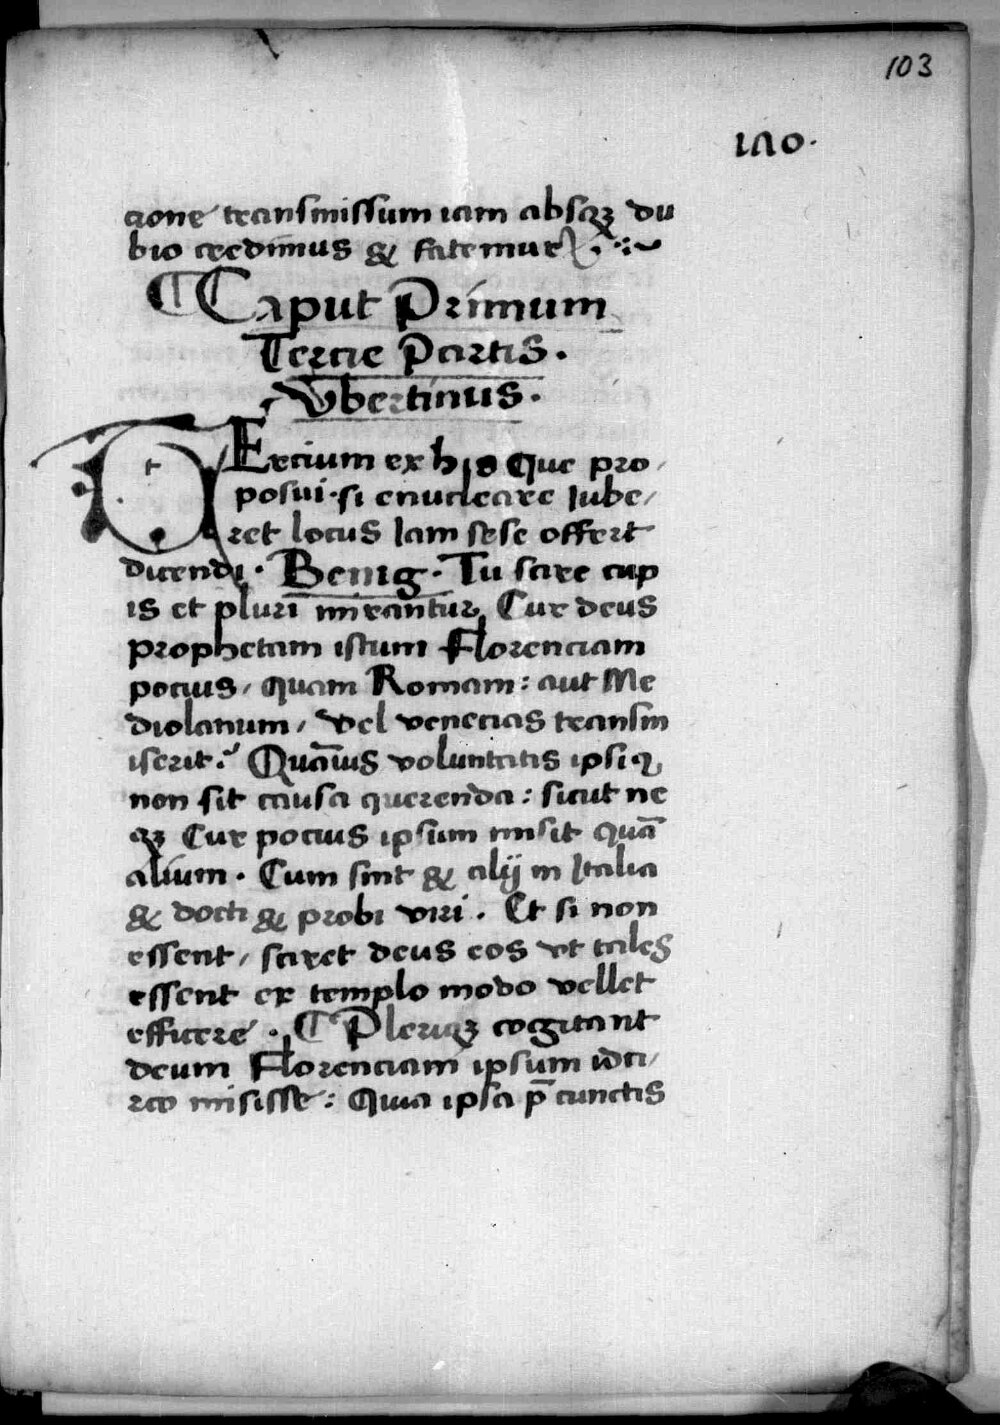 103
1Λ0.
cione transmissum iam absqʒ du
bio credimus & fatemur
Caput Primum
Tercie Partis.
Vbertinus.
TErcium ex his Que pro,
posui. si enucleare Iube,
ret locus Iam sese offert
dicendi. Benig. Tu scire cup
is et pluri mirantur, Cur deus
prophetam istum Florenciam
pocius, quam Romam: aut Me
diolanum, vel venecias transm
iserit? Quāuis voluntatis ipsiꝰ
non sit causa querenda: sicut ne
qʒ Cur pocius ipsum misit quā
alium. Cum sint & alij in Italia
& docti & probi viri. Et si non
essent, sciret deus eos vt tales
essent ex templo modo vellet
efficere. ¶ Pleriqʒ cogitant
deum Florenciam ipsum idci,
rco misisse: Quia ipsa p̄ cunctis